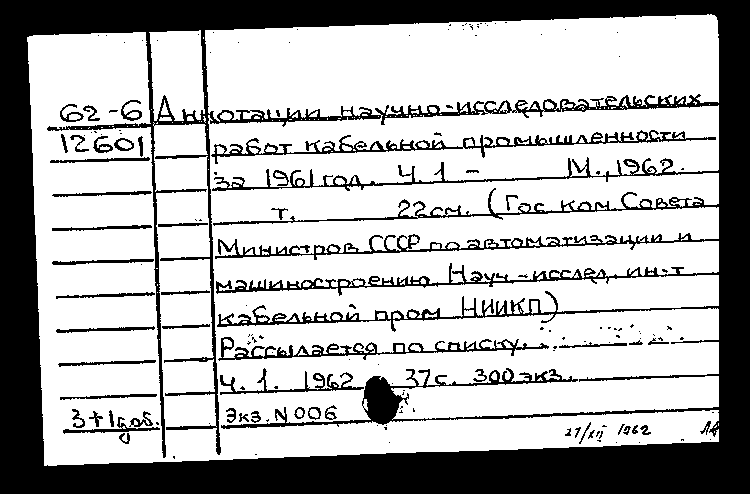 62-6 Аннотации научно-исследовательских
12601 работ кабельной промышленности
за 1961 год. Ч. 1 - М., 1962.
т. 22 см. (Гос ком. Совета
Министров СССР по автоматизации и
машиностроению. Науч.-исслед. ин-т
кабельной пром НИИКП)
Рассылается по списку.
Ч. 1. 1962 37 с. 300 экз.
3+1 доб. Экз. N 006
27/XII 1962